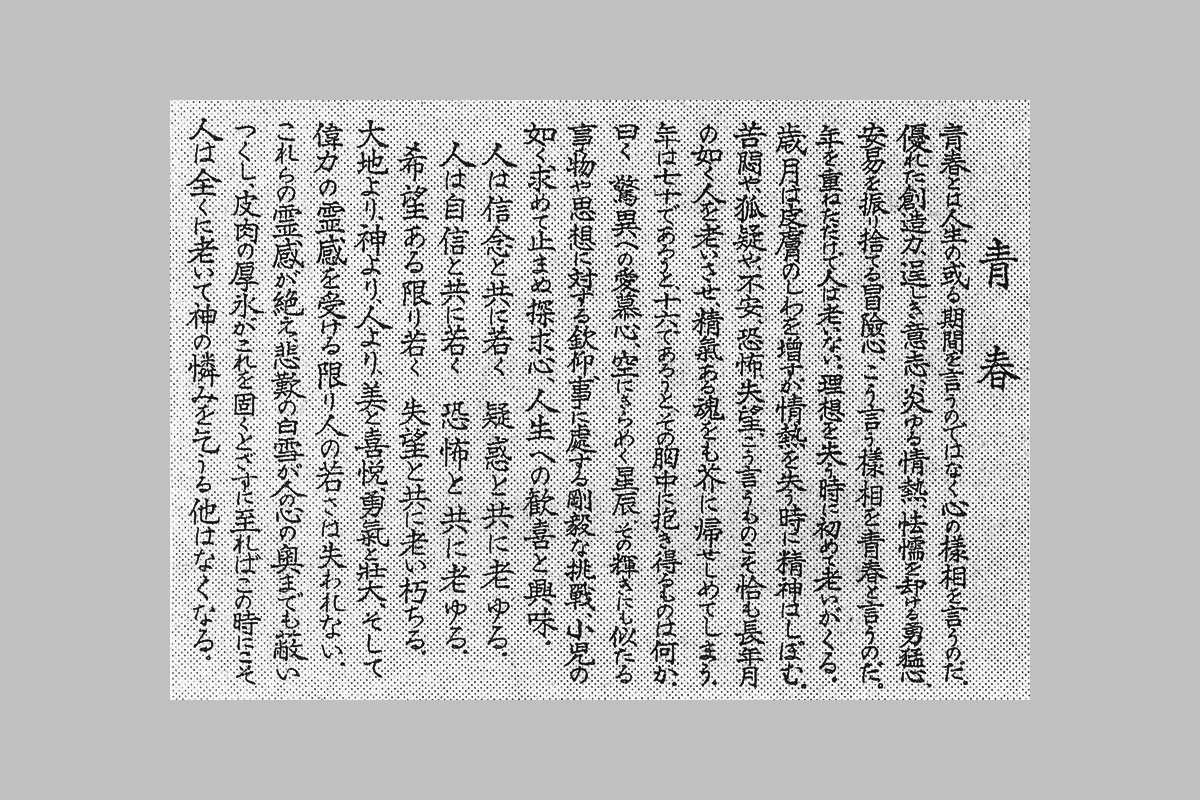 青春
青春とは人生の或る期間を言うのではなく心の様相を言うのだ。
優れた創造力、逞しき意志、炎ゆる情熱、怯懦を却ける勇猛心、
安易を振り捨てる冒険心、こう言う様相を青春と言うのだ。
年を重ねただけで人は老いない。理想を失う時に初めて老いがくる。
歳月は皮膚のしわを増すが、情熱を失う時に精神はしぼむ。
苦悶や、狐疑や、不安、恐怖、失望、こう言うものこそ恰も長年月
の如く人を老いさせ、精氣ある魂をも芥に帰せしめてしまう。
年は七十であろうと、十六であろうと、その胸中に抱き得るものは何か。
曰く 驚異への愛慕心、空にきらめく星辰、その輝きにも似たる
事物や思想に対する欽仰、事に處する剛毅な挑戰、小児の
如く求めて止まぬ探求心、人生への歓喜と興味。
人は信念と共に若く 疑惑と共に老ゆる。
人は自信と共に若く 恐怖と共に老ゆる。
希望ある限り若く 失望と共に老い朽ちる。
大地より、神より、人より、美と喜悦、勇氣と壮大、そして
偉力の霊感を受ける限り人の若さは失われない。
これらの霊感が絶え、悲歎の白雪が人の心の奥までも蔽い
つくし、皮肉の厚氷がこれを固くとざすに至ればこの時にこそ
人は全くに老いて神の憐みを乞うる他はなくなる。